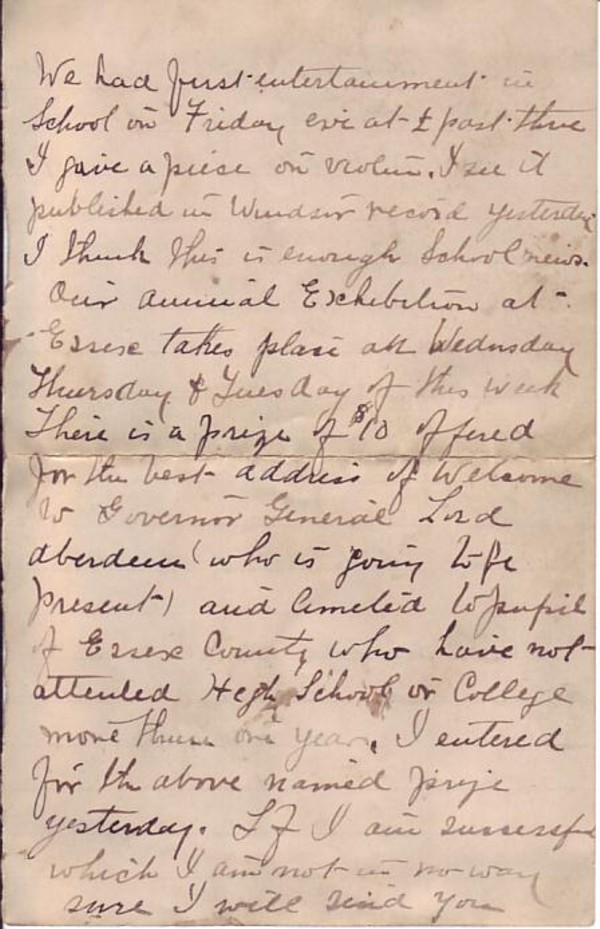 We had first entertainment in
School on Friday eve at ½ past three
I gave a piese on violin. I see it
published in Windsor record yesterday
I think this is enough School news.
Our annual Exhibition at
Essex takes place on Wednsday
Thursday & Tuesday of this week
There is a prize of $10 offered
for the best address of Welcome
to Governor General Lord
aberdeen (who is going to be
present) and limeted to pupils
of Essex County who have not
attended High School or College
more than one year. I entered
for the above named prize
yesterday. If I am successful
which I am not in no way
sure I will send you